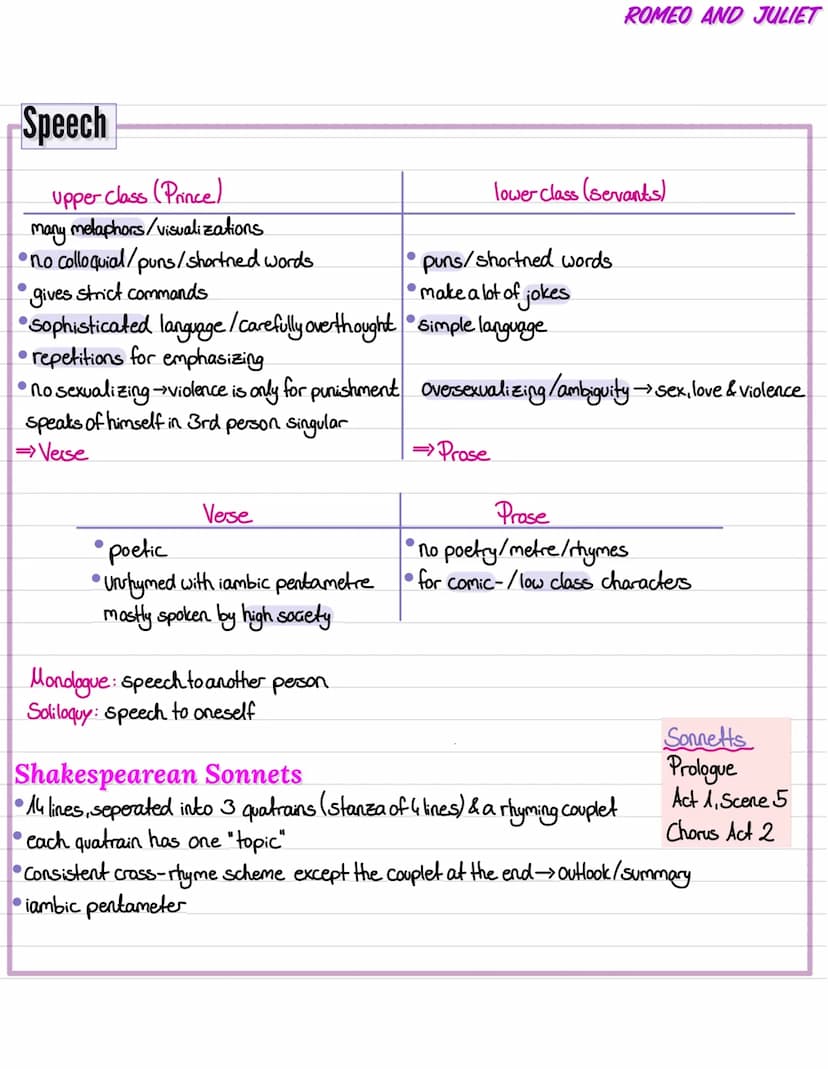 ROMEO AND JULIET
Speech
upper class (Prince)
many metaphors/visualizations
• no colloquial/puns/shortned words
• gives strict commands
• sophisticated language/carefully overthought
• repetitions for emphasizing
• no sexualizing → violence is only for punishment
speaks of himself in 3rd person singular
⇒ Verse
lower class (servants)
• puns/shortned words
• make a lot of jokes
• simple language
oversexualizing/ambiguity → sex, love & violence
⇒ Prose
Verse
• poetic
• unrhymed with iambic pentametre
mostly spoken by high society
Prose
• no poetry/metre/rhymes
• for comic-/low class characters
Monologue: speech to another person
Soliloquy: speech to oneself
Sonnetts
Prologue
Act 1, Scene 5
Chorus Act 2
Shakespearean Sonnets
• 14 lines, seperated into 3 quatrains (stanza of 4 lines) & a rhyming couplet
• each quatrain has one "topic"
• consistent cross-rhyme scheme except the couplet at the end → outlook/summary
• iambic pentameter